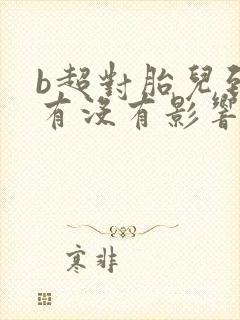 b超對胎兒到
有沒有影響
寒非